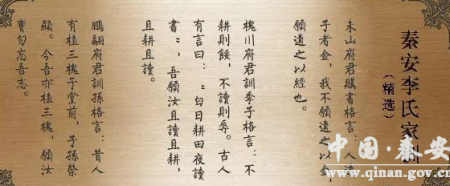 秦安李氏家
（精选）
未山府君書格言：人
子者金，我不願遺之以金，
願遺之以經也。
槐川府君訓季子格言：不
耕則餒，不讀則辱。古人
有言曰：“日耕田夜讀
書”，吾願汝且讀且耕，
且耕且讀。
鵬翮府君訓孫格言：昔人
有植三槐于堂前，子孫榮
顯。今吾亦植三槐，願汝
曹勿忘吾志。
中国·秦安
www.qinan.gov.cn